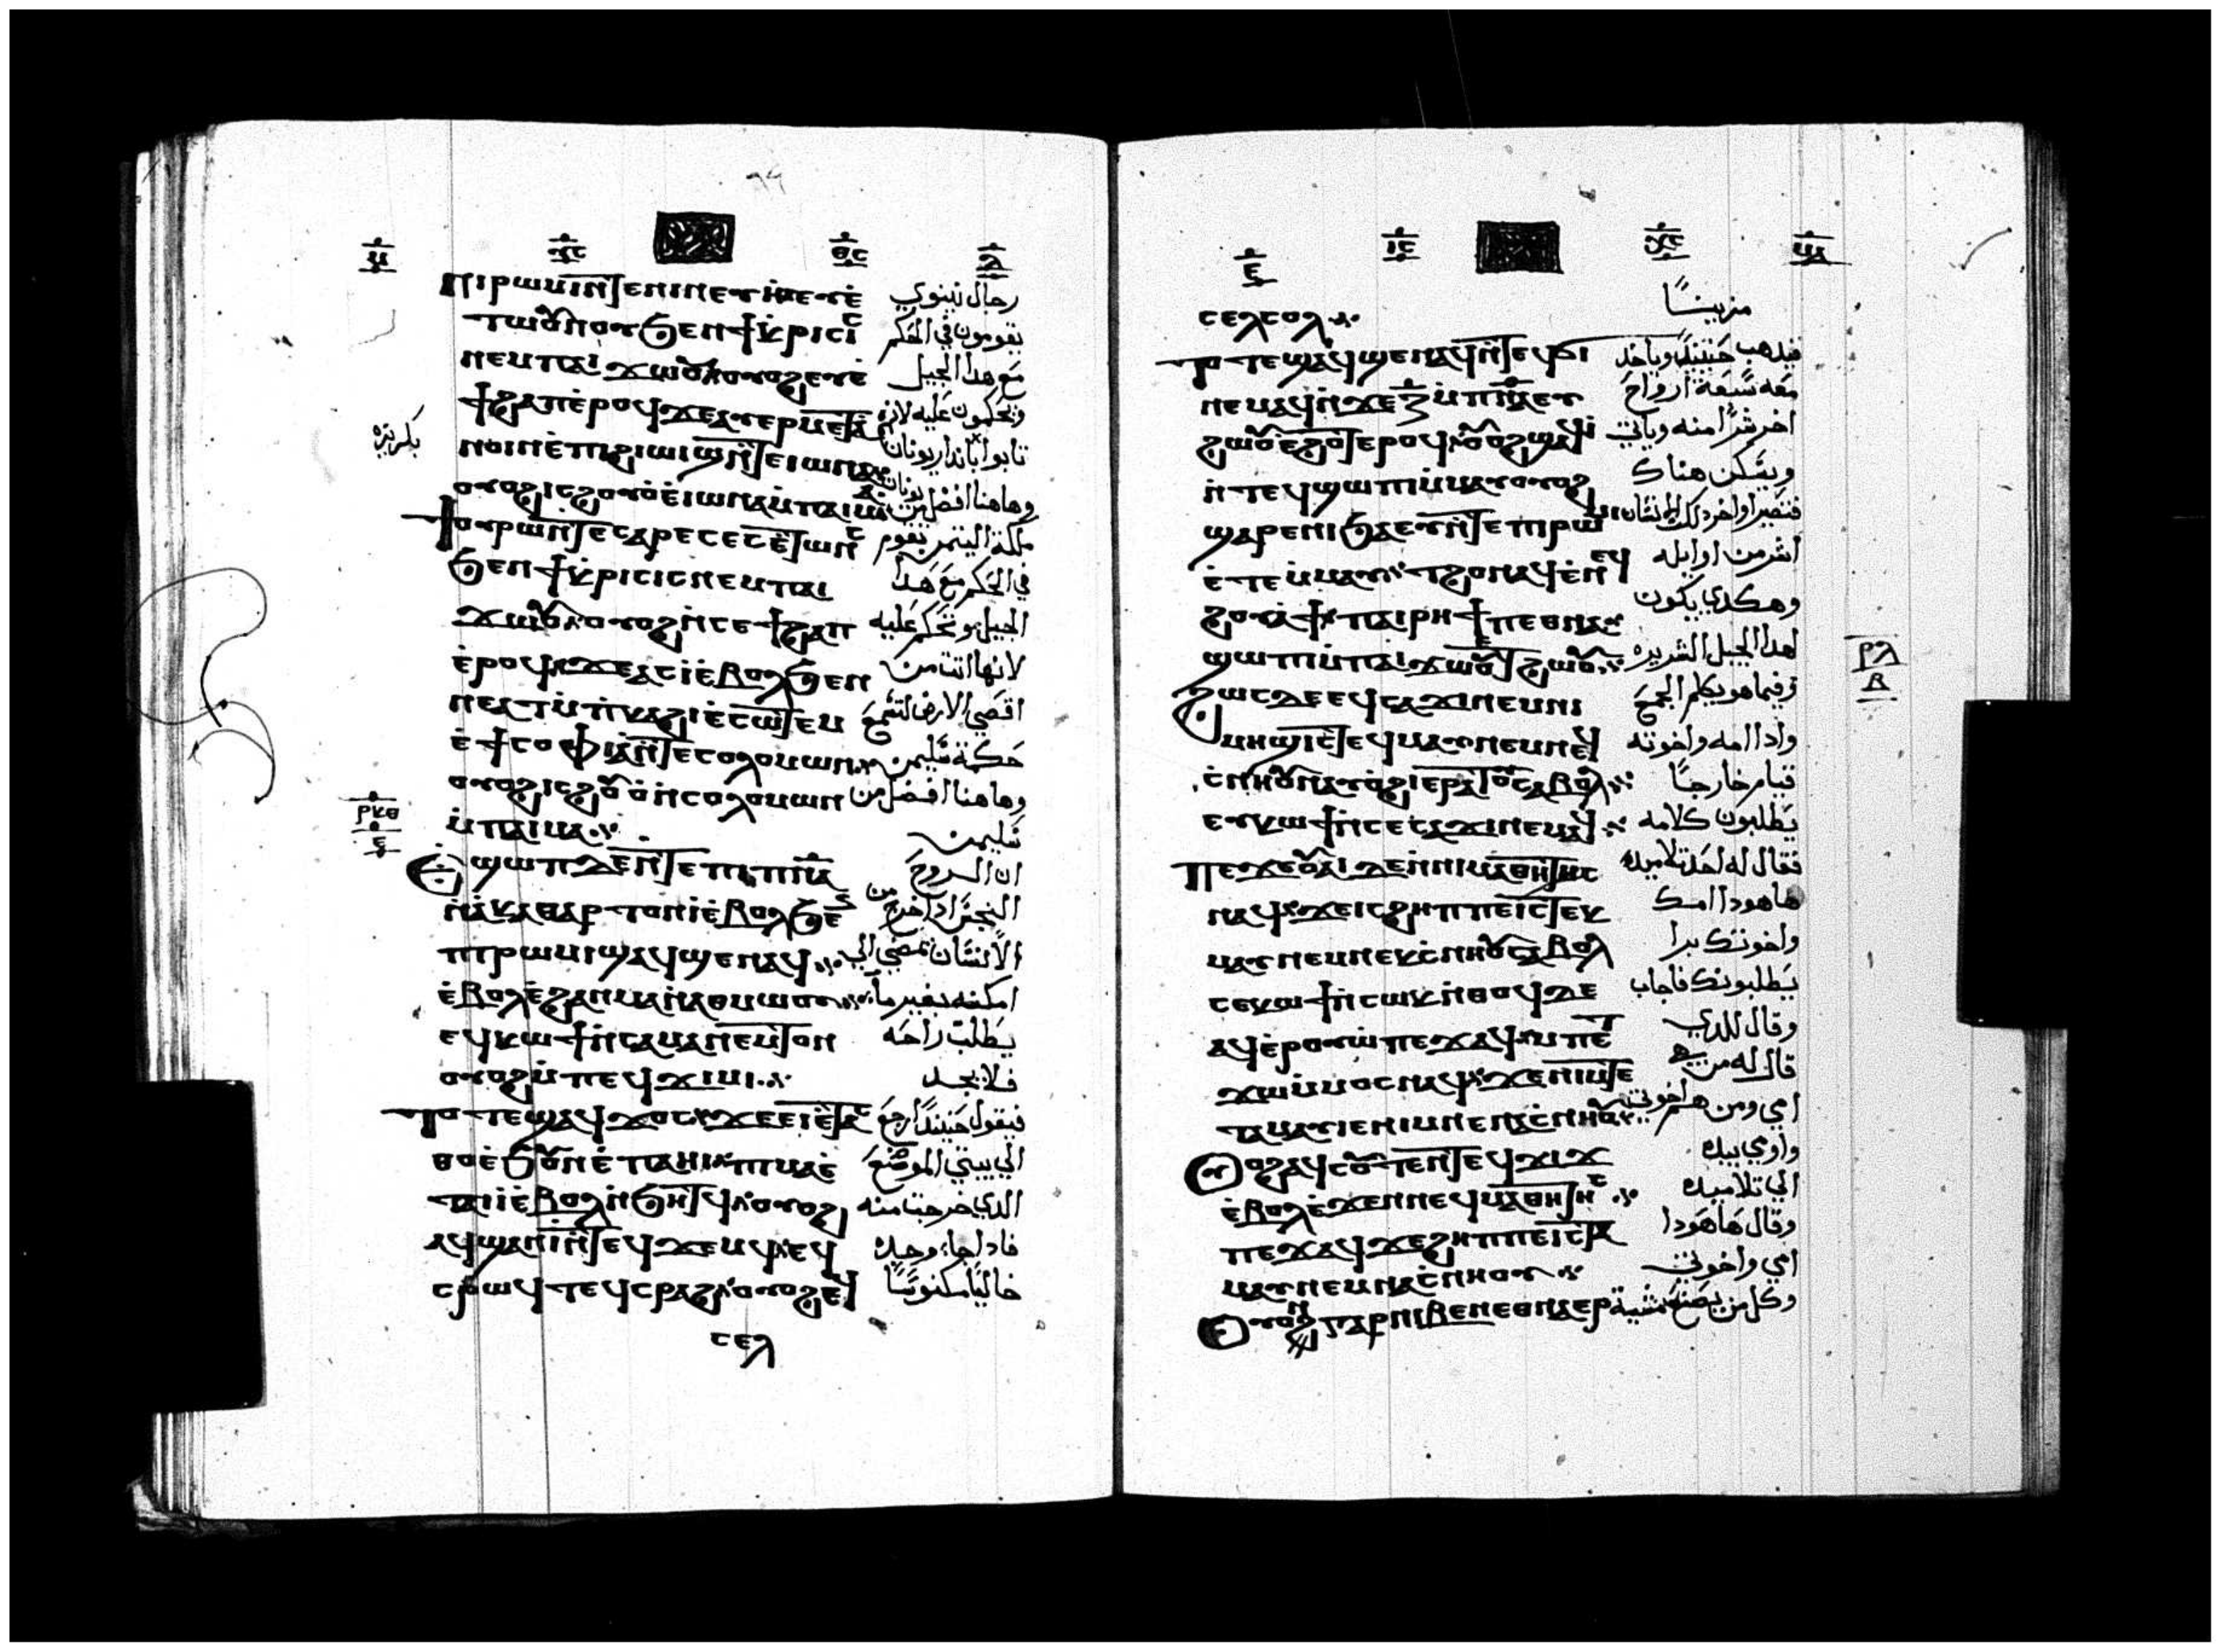 ⲡⲓⲣⲱⲙⲓ ⲛ̅ⲧⲉ ⲛⲓⲛⲉⲩⲏ ⲉⲩⲉ̀ رجال نينوي
ⲧⲱⲟⲩⲛⲟⲩ ϧⲉⲛ ϯⲕⲣⲓⲥⲓⲥ يقومون في الحكم
ⲛⲉⲙ ⲡⲁⲓ ϫⲱⲟⲩ ⲟⲩⲟϩ ⲉⲩⲉ̀ مع هدا الجيل
ϯϩⲁⲡ ⲉ̀ⲣⲟϥ ϫⲉ ⲁⲩⲉⲣⲙⲉⲧⲁ ويحكمون عليه لانهم
ⲛⲟⲓⲛ ⲉ̀ⲡϩⲓⲱⲓϣ ⲛ̅ⲧⲉ ⲓⲱⲛⲁ تابوا بانداريونان
ⲟⲩⲟϩ ⲓⲥ ϩⲟⲩⲟ̀ ⲉ̀ⲓⲱⲛⲁ ⲙ̀ⲡⲁⲓⲙⲁ وهاهنا افضل من يونان
ϯⲟⲩⲣⲱ ⲛ̅ⲧⲉ ⲥⲁⲣⲏⲥ ⲉⲥⲉ̀ⲧⲱⲛⲥ ملكة اليتمن تقوم
ϧⲉⲛ ϯⲕⲣⲓⲥⲓⲥ ⲛⲉⲙ ⲡⲁⲓ في الحكم مع هدا
ϫⲱⲟⲩ ⲟⲩⲟϩ ⲛ̀ⲥⲉϯϩⲁⲡ الجيل وتحكم عليه
ⲉ̀ⲣⲟϥ ϫⲉ ⲁⲥⲓ̀ ⲉ̀ⲃⲟⲗ ϧⲉⲛ لانها اتت من
ⲛⲉⲁⲩ ⲙ̀ⲡⲕⲁϩⲓ ⲉ̀ⲥⲱⲧⲉⲙ اقصي الارض لتسمع
ⲉ̀ϯⲥⲟⲫⲓⲁ ⲛ̅ⲧⲉ ⲥⲟⲗⲟⲙⲱⲛ حكمة سليمن
ⲟⲩⲟϩ ⲓⲥ ϩⲟⲩⲟ̀ ⲛ̀ⲥⲟⲗⲟⲙⲱⲛ وهاهنا افضل من
ⲙ̀ⲡⲁⲓⲙⲁ سليمن
ⲣⲕⲑ
ⲉ
ⲉϣⲱⲡ ⲇⲉ ⲛ̅ⲧⲉ ⲡⲓⲡⲛ̅ⲁ̅ ان الروح
ⲛ̀ⲁ̀ⲕⲁⲑⲁⲣⲧⲟⲛ ⲓ̀ ⲉ̀ⲃⲟⲗ ϧⲉⲛ النجس ادا خرج من
ⲡⲣⲱⲙⲓ ϣⲁϥϣⲉⲛⲁϥ الانسان يمضي الي
ⲉ̀ⲃⲟⲗ ⲉ̀ϩⲁⲛⲙⲁ ⲛ̀ⲁⲑⲙⲱⲟⲩ امكنه بغير ما
ⲉϥⲕⲱϯ ⲛ̀ⲥⲁ ⲙⲁⲛⲉⲙⲧⲟⲛ يطلب راحه
ⲟⲩⲟϩ ⲙ̀ⲡⲉϥϫⲓⲙⲓ فلا يجد
ⲧⲟⲧⲉ ϣⲁϥϫⲟⲥ ϫⲉ ⲉⲓⲉ̀ⲧⲁⲥ فيقول حينيدا ارجع
ⲑⲟ ⲉ̀ϧⲟⲩⲛ ⲉ̀ⲡⲁⲏⲓ ⲡⲓⲙⲁ ⲉ̀ الي بيتي الموضع
ⲧⲁⲓⲓ̀ ⲉ̀ⲃⲟⲗ ⲛ̀ϧⲏⲧϥ ⲟⲩⲟϩ الدي خرجت منه
ⲁϥϣⲁⲛⲓ̀ ⲛ̅ⲧⲉϥϫⲉⲙϥ ⲉϥ فادا جاء وجده
ⲥⲣⲱϥⲧ ⲉϥⲥⲣⲁϩ ⲟⲩⲟϩ ⲉϥ خاليا مكنوسا
ⲥⲉⲗ
ⲥⲉⲗⲥⲟⲗ مزينا
ⲧⲟⲧⲉ ϣⲁϥϣⲉⲛⲁϥ ⲛ̅ⲧⲉϥϭⲓ فيدهب حينيدا وياخد
ⲛⲉⲙⲁϥ ⲛ̀ⲕⲉ ⲍ̅ ⲙ̀ⲡⲛⲉⲩⲙⲁ معه سبعة ارواح
ϩⲱⲟⲩ ⲉ̀ϩⲟⲧⲉⲣⲟϥ ⲟⲩⲟϩ ϣⲁϥⲓ̀ اخر شرا منه وياتي
ⲛ̀ⲧⲉϥϣⲱⲡⲓ ⲙ̀ⲙⲁⲩ ⲟⲩⲟϩ ويسكن هناك
ϣⲁⲣⲉ ⲛⲓϧⲁⲉⲩ ⲛ̅ⲧⲉ ⲡⲣⲱⲙⲓ فتصير اواخر دلك الانسان
ⲉ̀ⲧⲉⲙ̀ⲙⲁⲩ ⲧϩⲟ ⲛⲁϥ ⲉ̀ⲛⲉϥ اشر من اوايله
ϩⲟⲩⲁϯ ⲡⲁⲓⲣⲏϯ ⲡⲉⲑⲛⲁ وهكدي يكون
ϣⲱⲡⲓ ⲙ̀ⲡⲁⲓϫⲱⲟⲩ ⲉⲧϩⲱⲟⲩ لهدا الجيل الشرير
ϩⲱⲥ ⲇⲉ ⲉϥⲥⲁϫⲓ ⲛⲉⲙ ⲛⲓ وفيما هو يكلم الجمع
ⲣⲗ
ⲃ
ⲙⲏϣ ⲓⲥ ⲧⲉϥⲙⲁⲩ ⲛⲉⲙ ⲛⲉϥ وادا امه واخوته
ⲥ̀ⲛⲏⲟⲩ ⲛⲁⲩⲟ̀ϩⲓ ⲉⲣⲁⲧⲟⲩ ⲥⲁⲃⲟⲗ قيام خارجا
ⲉⲩⲕⲱϯ ⲛ̀ⲥⲉⲥⲁϫⲓ ⲛⲉⲙⲁϥ يطلبون كلامه
ⲡⲉϫⲉ ⲟⲩⲁⲓ ⲇⲉ ⲛ̀ⲛⲓⲙⲁⲑⲏⲧⲏⲥ فقال له احد تلاميده
ⲛⲁϥ ϫⲉ ⲓⲥ ϩⲏⲡⲡⲉ ⲓⲥ ⲧⲉⲕ هاهودا امك
ⲙⲁⲩ ⲛⲉⲙ ⲛⲉⲕⲥ̀ⲛⲏⲟⲩ ⲥⲁⲃⲟⲗ واخوتك برا
ⲥⲉⲕⲱϯ ⲛ̀ⲥⲱⲕ ⲛ̀ⲑⲟϥ ⲇⲉ يطلبونك فاجاب
ⲁϥⲉ̀ⲣⲟⲩⲱ̀ ⲡⲉϫⲁϥ ⲙ̀ⲡⲉⲧ وقال للدي
ϫⲱ ⲙ̀ⲙⲟⲥ ⲛⲁϥ ϫⲉ ⲛⲓⲙ ⲧⲉ قال له من هي
ⲧⲁⲙⲁⲩ ⲓⲉ ⲛⲓⲙ ⲛⲉ ⲛⲁⲥ̀ⲛⲏⲟⲩ امي ومن هم اخوتي
ⲟⲩⲟϩ ⲁϥⲥⲟⲩⲧⲉⲛ ⲧⲉϥϫⲓϫ واومي بيده
ⲉ̀ⲃⲟⲗ ⲉ̀ϫⲉⲛ ⲛⲉϥⲙⲁⲑⲏⲧⲏⲥ الي تلاميده
ⲡⲉϫⲁϥ ϫⲉ ϩⲏⲡⲡⲉ ⲓⲥ ⲧⲁ وقال هاهودا
ⲙⲁⲩ ⲛⲉⲙ ⲛⲁⲥ̀ⲛⲏⲟⲩ امي واخوتي
ⲟⲩⲟⲛ ⲅⲁⲣ ⲛⲓⲃⲉⲛ ⲉⲑⲛⲁⲉⲣ وكل من يصنع مشية